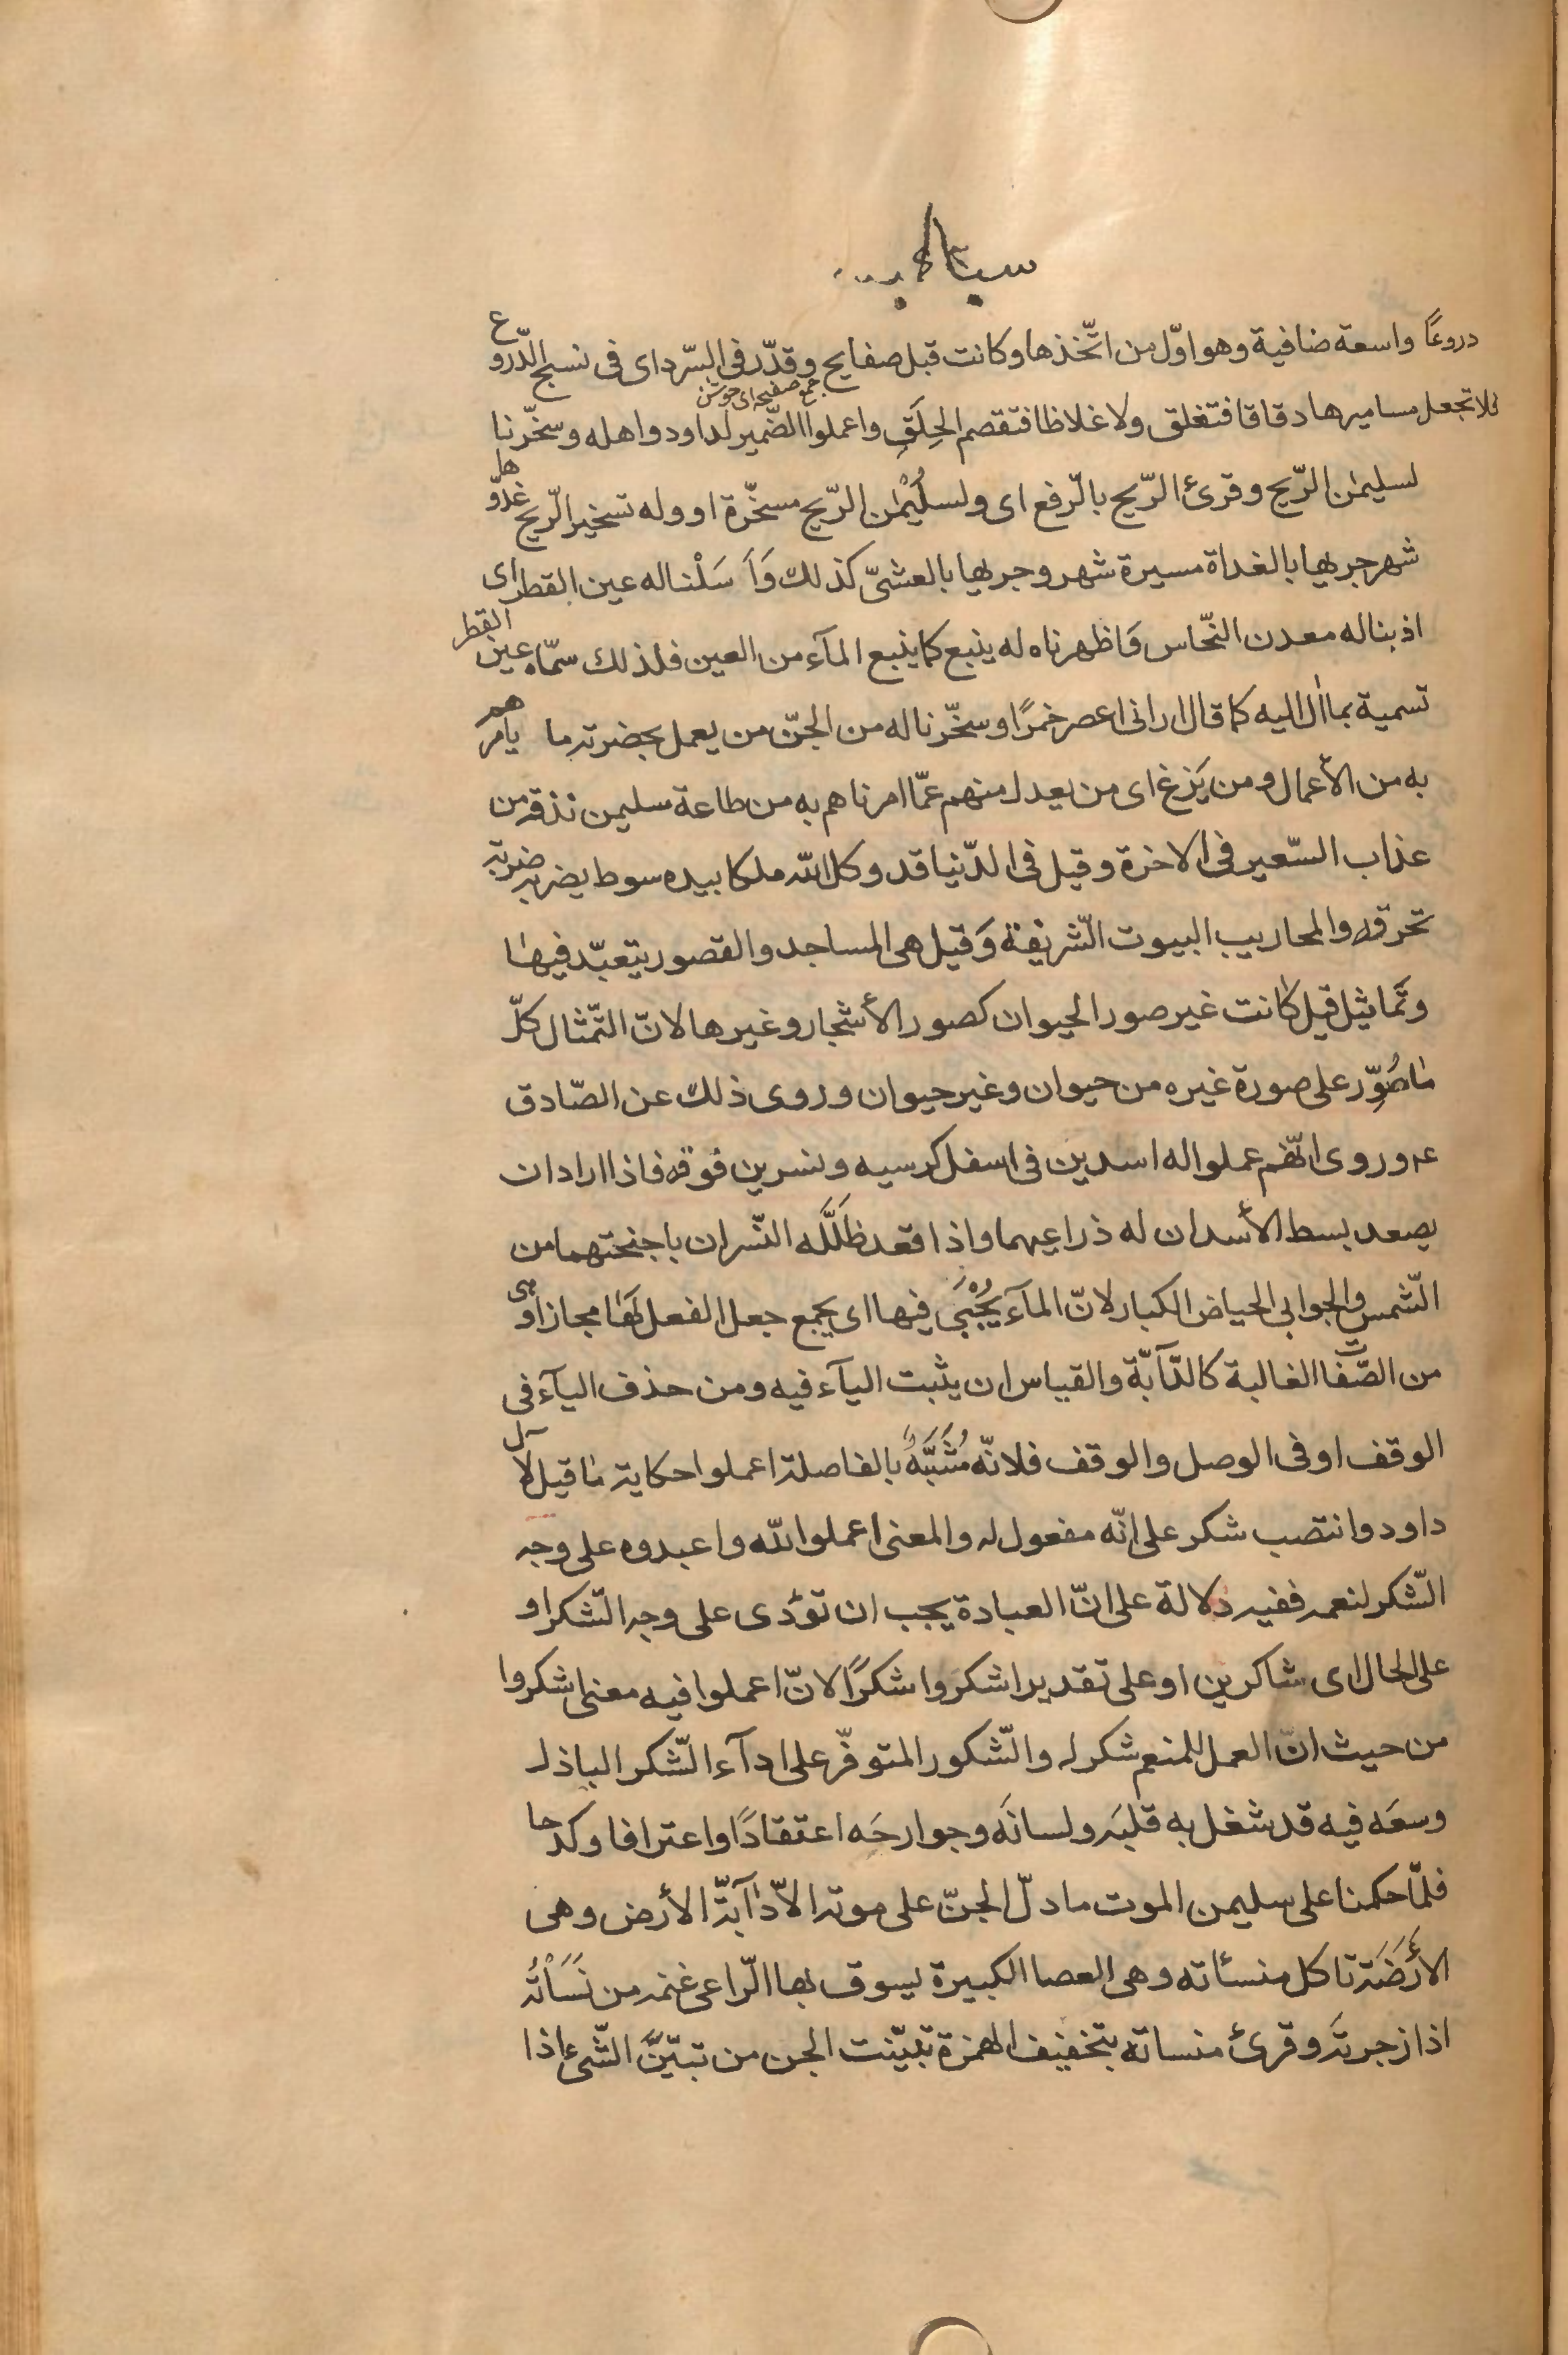 دروعًا واسعة ضافية وهو اوّل من اتّخذها وكانت قبل صفايح وقدّر فى السّرد اى فى نسج الدّروع
جمع صفيحه اى جوشن
فلا تجعل مساميرها دقاقا فتغلق ولا غلاظا فتقصم الحِلَق واعملوا الضّمير لداود واهله وسخّرنا
لسليمٰن الرّيح وقرئ الرّيح بالرّفع اى ولسُلَيْمٰن الرّيح مسخّرة او وله تسخير الرّيح غدوّها
شهر جريها بالغداة مسيرة شهر وجريها بالعشىّ كذلك وَاَسَلْنا له عين القطر اى
اذبنا له معدن النّحاس وَاظهرناه له ينبع كما ينبع المآء من العين فلذلك سمّاه عين القطر
تسمية بما اٰل اليه كما قال ارانى اعصر خمرًا وسخّرنا له من الجنّ من يعمل بحضرته ما يامرهم
به من الأعمال ومن يَزغ اى من يعدل منهم عمّا امرناهم به من طاعة سليمن نذقه من
عذاب السّعير فى الاخرة وقيل فى الدّنيا قد وكل اللّه ملكا بيده سوط يضربه ضربة
تحرقه والمحاريب البيوت الشّريفة وَقيل هى المساجد والقصور يتعبّد فيها
وتَماثيل قيل كانت غير صور الحيوان كصور الأشجار وغيرها لانّ التّمثال كلّ
ما صُوِّر على صورة غيره من حيوان وغير حيوان وروى ذلك عن الصّادق
عـ وروى انّهم عملوا له اسدين فى اسفل كرسيه ونسرين فوقه فاذا اراد ان
يصعد بسط الأسدان له ذراعيهما واذا قعد ظَلَّلَه النّسران باجنحتهما من
الشّمس والجوابى الحياض الكبار لانّ المآء يُجْبَى فيها اى يجمع جعل الفعل لها مجازا وهى
من الصّفات الغالبة كالدّآبّة والقياس ان يثبت اليآء فيه ومن حذف اليآء فى
الوقف او فى الوصل والوقف فلانّه مُشَبَّهٌ بالفاصلة اعملوا حكاية ما قيل لآل
داود وانتصب شكر على انّه مفعول له والمعنى اعملوا للّه واعبدوه على وجه
الشّكر لنعمه ففيه دلالة على انّ العبادة يجب ان تؤدى على وجه الشّكر او
على الحال اى شاكرين او على تقدير اشكروا شكرًا لانّ اعملوا فيه معنى اشكروا
من حيث انّ العمل للمنعم شكر له والشّكور المتوفّر على ادآء الشّكر الباذل
وسعَه فيه قد شغل به قلبَه ولسانَه وجوارحَه اعتقادًا واعترافا وكدحا
فلمّا حكمنا على سليمن الموت ما دلّ الجنّ على موته الاّ دآبّة الأرض وهى
الأَرَضَة تاكل منسأته وهى العصا الكبيرة يسوق بها الرّاعى غنمه من نَسَأْتُه
اذا زجرته وقرئ منساته بتخفيف الهمزة تبيّنت الجن من تبيّنَّ الشّىء اذا